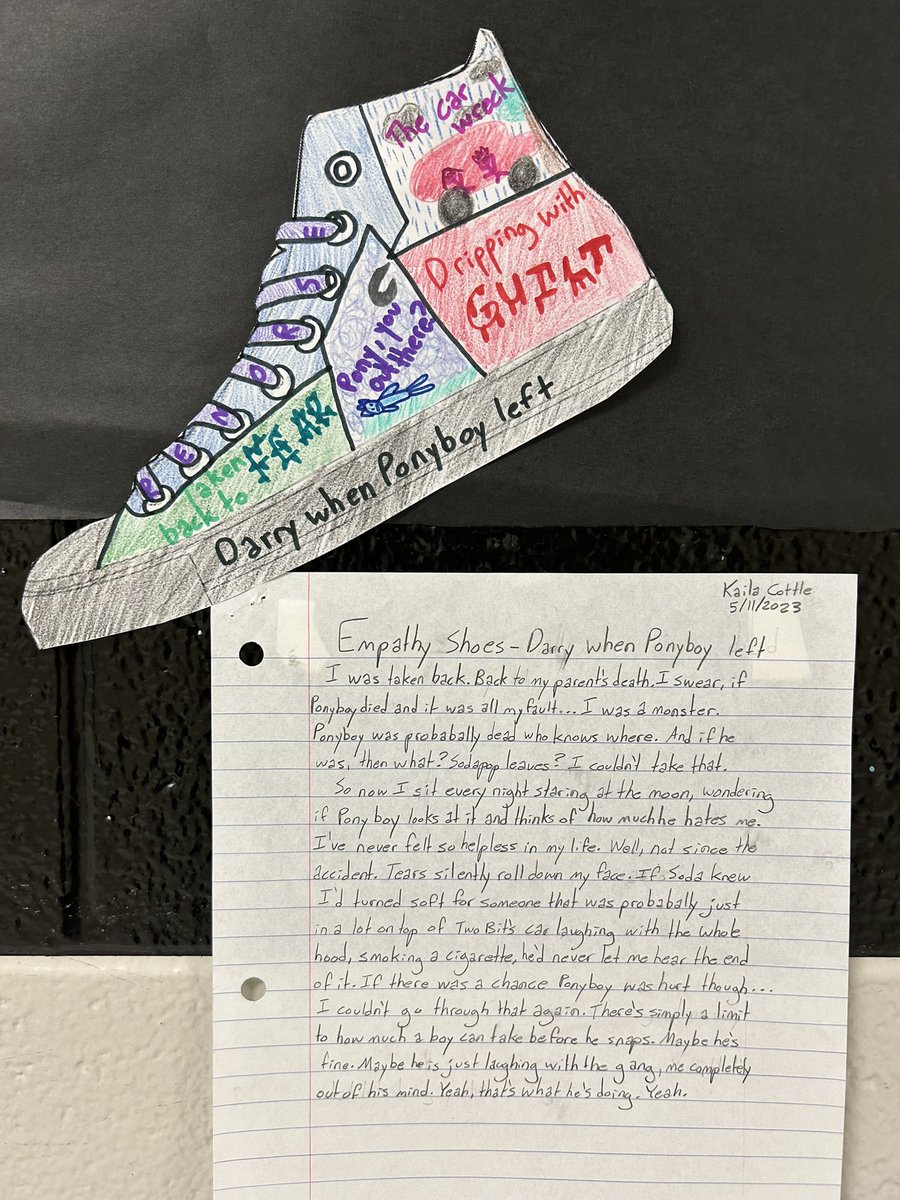 The car
wreck
Dripping with
GUILT
Pony, you
out there?
REMORSE
Taken
back to FEAR
Darry when Ponyboy left
Kaila Cottle
5/11/2023
Empathy Shoes - Darry when Ponyboy left
I was taken back. Back to my parent's death. I swear, if
Ponyboy died and it was all my fault... I was a monster.
Ponyboy was probabally dead who knows where. And if he
was, then what? Sodapop leaves? I couldn't take that.
So now I sit every night staring at the moon, wondering
if Pony boy looks at it and thinks of how much he hates me.
I've never felt so helpless in my life. Well, not since the
accident. Tears silently roll down my face. If Soda knew
I'd turned soft for someone that was probabally just
in a lot on top of Two Bit's car laughing with the whole
hood, smoking a cigarette, he'd never let me hear the end
of it. If there was a chance Ponyboy was hurt though...
I couldn't go through that again. There's simply a limit
to how much a boy can take before he snaps. Maybe he's
fine. Maybe he is just laughing with the gang, me completely
out of his mind. Yeah, that's what he's doing. Yeah.